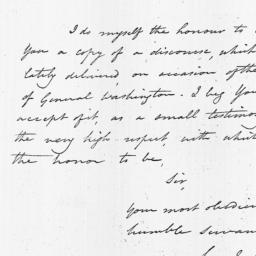 I do myself the honour to
you a copy of a discourse, which
lately delivered, on occasion of the
of General Washington. I beg you
accept of it, as a small testimon
the very high respect, with whic
the honor to be,
Sir,
your most obedien
humble Servan